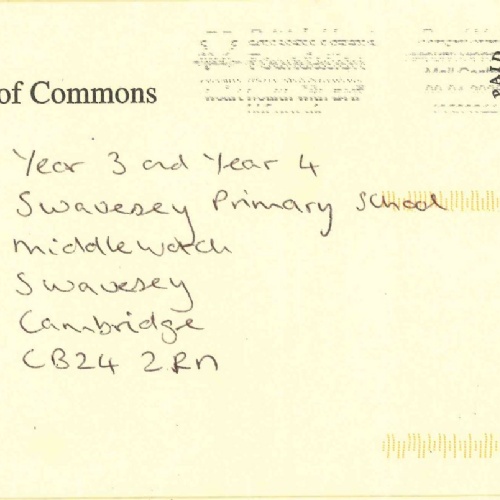 of Commons
PAID
Year 3 and Year 4
Swavesey Primary School
Middlewatch
Swavesey
Cambridge
CB24 2RN